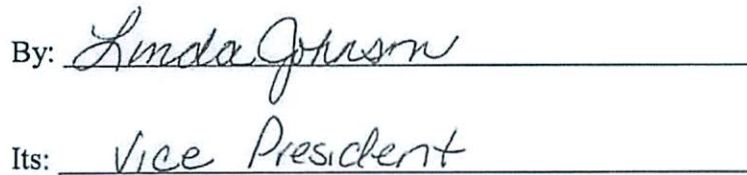 By: Linda Johnson
Its: Vice President